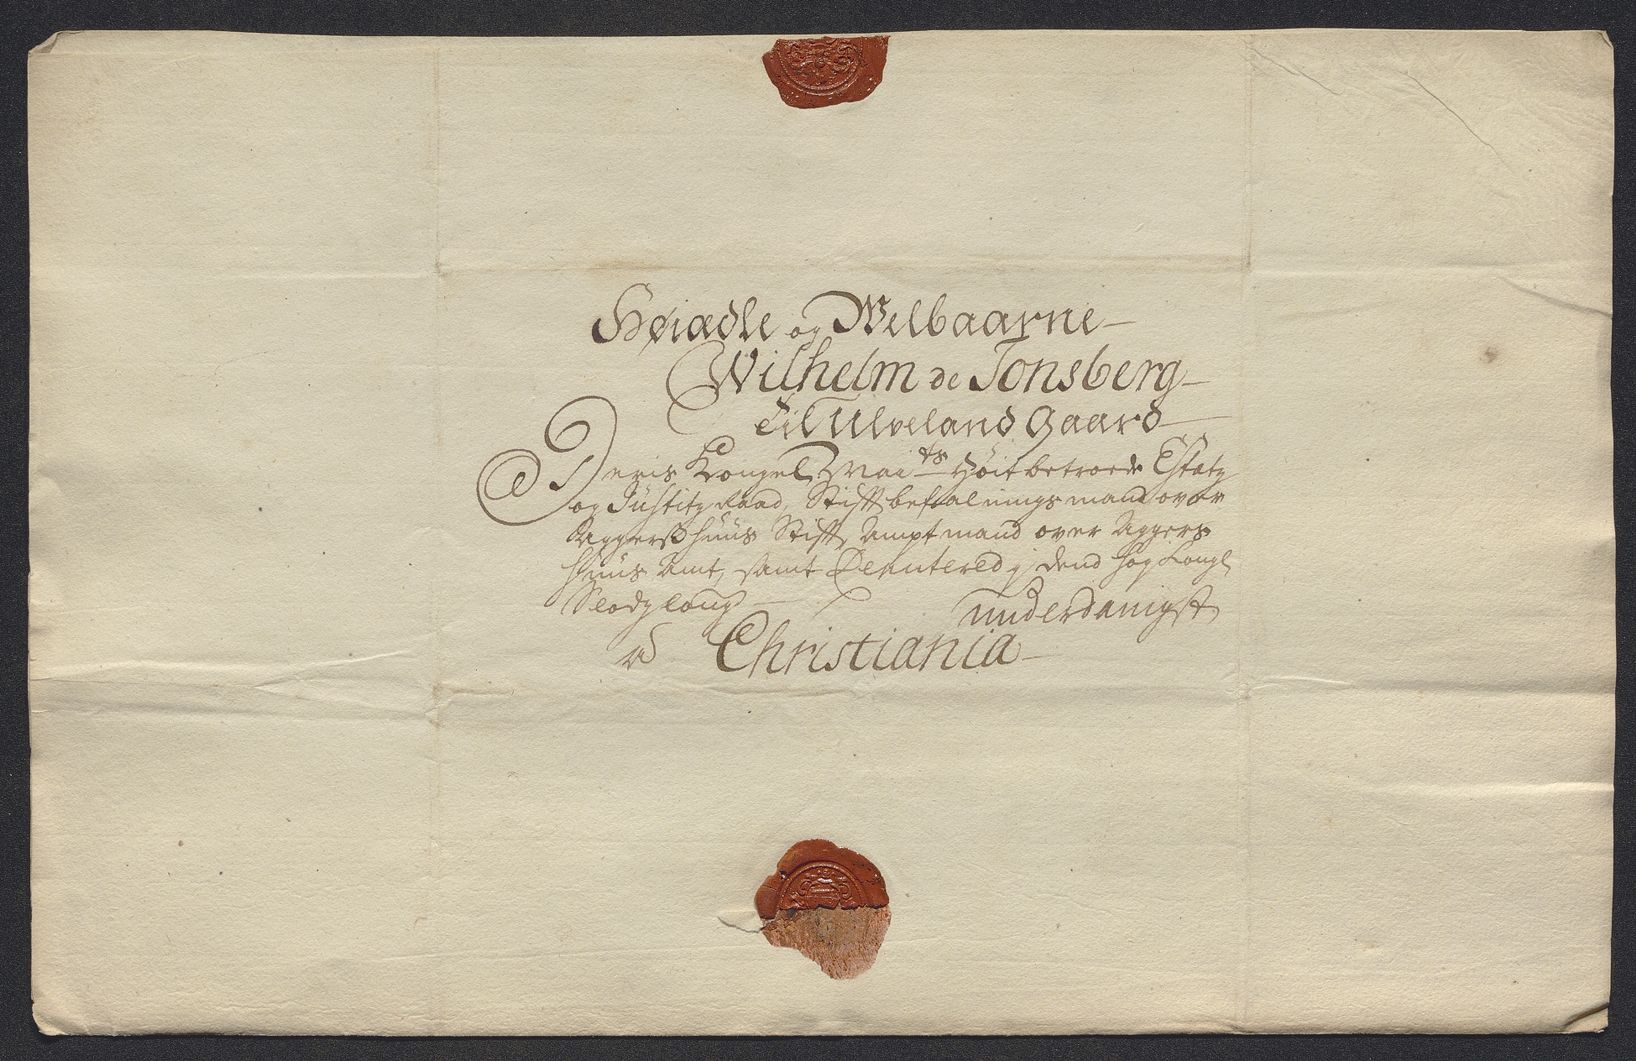 Høiædle og Welbaarne
Wilhelm de Tonsberg
til Ulveland Gaard
Deris Kongel Mai ts Høit betroede Estatz
og Justitz Raad, Stiftbefalningsmand over
Aggerßhuus Stift, Amptmand over Aggers
huus Amt, samt Deputered j dend høy Kongl
Slodzlong
underdanigst
a Christiania